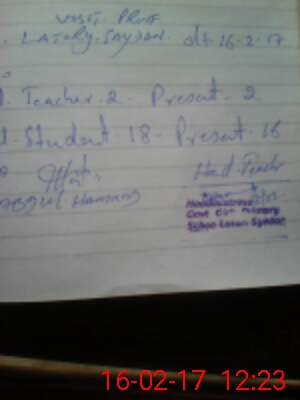 VISIT. PROF
LATORY. SAYDAN. dt. 16-2-17
Teacher. 2. Present. 2
Student 18- Present. 16
Head Teacher
Headmistress
Govt Girl Primary
School Latori Syedan
16-02-17 12:23